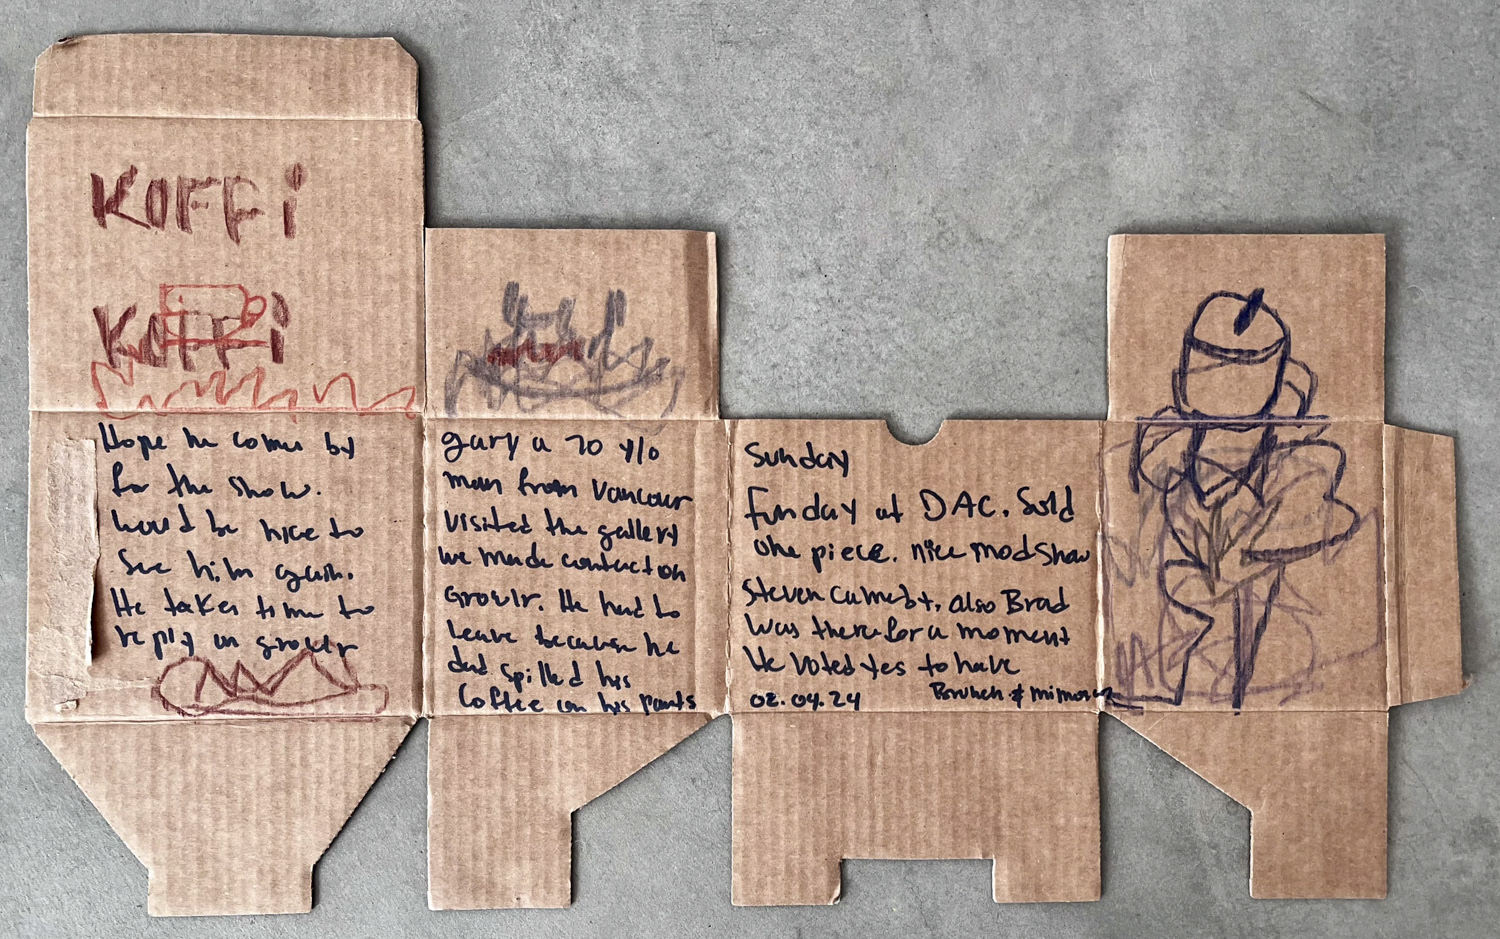 KOFFi
KOFFi
Hope he comes by
for the show.
would be nice to
See him again.
He takes time to
reply on growlr
gary a 70 y/o
man from Vancouver
visited the gallery
we made contact on
Growlr. He had to
leave because he
dad spilled his
Coffee on his pants
Sunday
Funday at DAC. Sold
one piece. nice mod show
Steven also Brad
was there for a moment
He voted yes to have
Brunch & mimosa
02.04.24